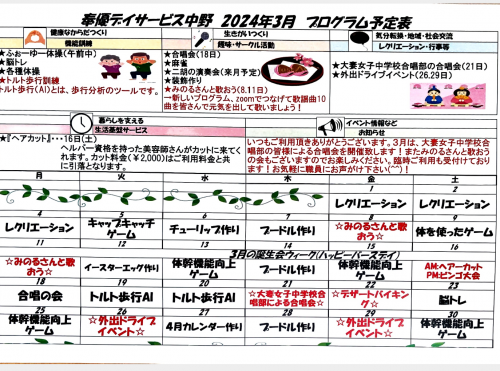 華優デイサービス中野 2024年3月 プログラム予定表
健康なからだづくり
機能訓練
★ふぉーゆー体操(午前中)
★脳トレ
★各種体操
★トルト歩行訓練
トルト歩行(AI)とは、歩行分析のツールです。
生きがいづくり
趣味・サークル活動
★合唱会(18日)
★麻雀
★二胡の演奏会(来月予定)
★装飾作り
★みのるさんと歌おう(8.11日)
一新しいプログラム、zoomでつなげて歌謡曲10
曲を皆さんで元気を出して歌いましょう!
気分転換・地域・社会交流
レクリエーション・行事等
★大妻女子中学校合唱部の合唱会(21日)
★外出ドライブイベント(26.29日)
暮らしを支える
生活基型サービス
★『ヘアカット』・・・16日(土)
ヘルパー資格を持った美容師さんがカットに来てく
れます。カット料金(¥2,000)はご利用料金と共
に引落となります。
イベント情報など
お知らせ
いつもご利用頂きありがとうございます。3月は、大妻女子中学校合
唱部の皆様による合唱会を開催致します!またみのるさんと歌おう
の会もございますのでお楽しみください。臨時ご利用も受付けており
ます!お気軽に職員にお声がけ下さい(^^)!
月 火 水 木 金 土
1 2
レクリエーション レクリエーション
4 5 6 7 8 9
レクリエーション キャップキャッチ
ゲーム チューリップ作り プードル作り ☆みのるさんと歌
おう☆ 体を使ったゲーム
11 12 13 14 15 16
3月の誕生会ウィーク(ハッピーバースデイ)
☆みのるさんと歌
おう☆ イースターエッグ作り 体幹機能向上
ゲーム プードル作り 体幹機能向上
ゲーム AM:ヘアーカット
PM:ビンゴ大会
18 19 20 21 22 23
合唱の会 トルト歩行AI トルト歩行AI ☆大妻女子中学校合
唱部による合唱会☆ ☆デザートバイキン
グ☆ 脳トレ
25 26 27 28 29 30
体幹機能向上
ゲーム ☆外出ドライブ
イベント☆ 4月カレンダー作り プードル作り ☆外出ドライブ
イベント☆ 体幹機能向上
ゲーム